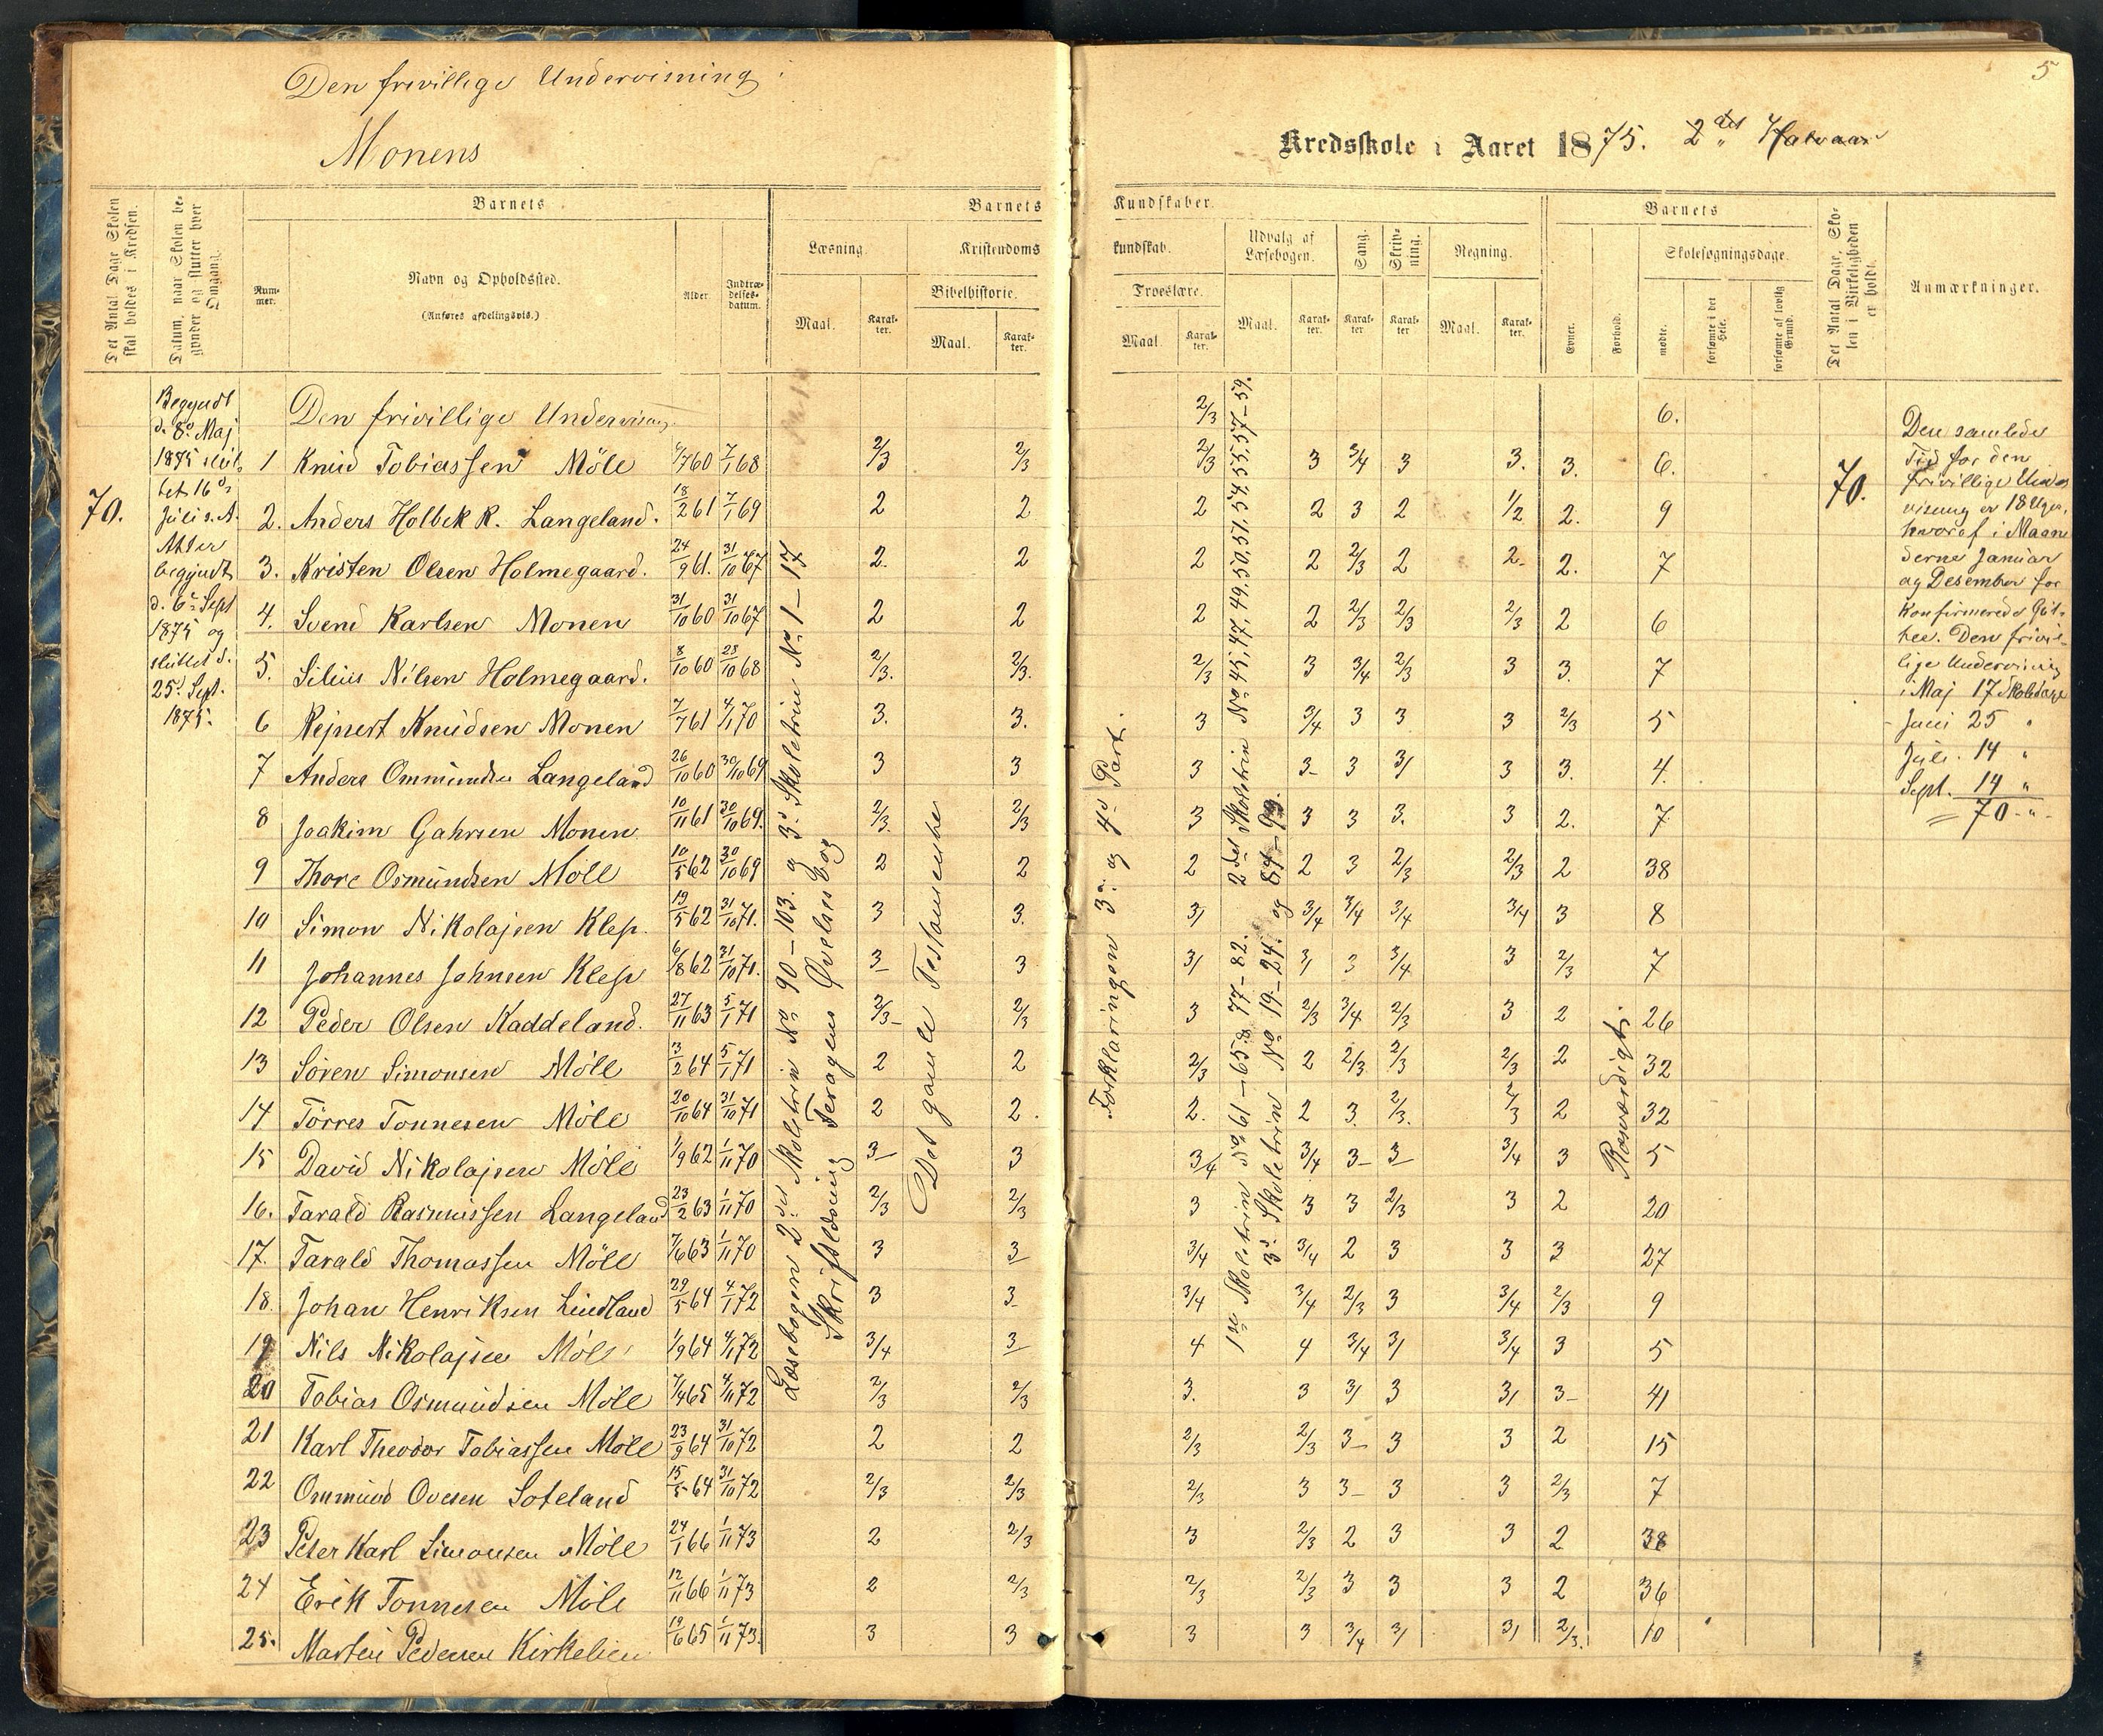 Den frivillige Undervisning i
Monens
Kredsskole i Aaret 1875. 2det Halvaar
5
Det Antal Dage Skolen skal holdes i Kredsen.
Datum, naar Skolen begynder og slutter hver Omgang.
Barnets
Nummer.
Navn og Opholdssted.
(Anføres afdelingsvis.)
Alder.
Indtrædelses-datum.
Barnets
Læsning.
Maal.
Karakter.
Kristendoms
Bibelhistorie.
Maal.
Karakter.
Kundskaber.
kundskab.
Troeslære.
Maal.
Karakter.
Udvalg af Læsebogen.
Maal.
Karakter.
Sang.
Karakter
Skrivning.
Karakter
Regning.
Maal.
Karakter.
Barnets
Evner.
Forhold.
Skolesøgningsdage.
mødte.
forsømte i det Hele.
forsømte af lovlig Grund.
Det Antal Dage, Skolen i Virkeligheden er holdt.
Anmærkninger.
70.
Begyndt
d. 8de Maj
1875 slut-
tet 16de
Juli s. A.
Atter
begyndt
d. 6te Sept
1875 og
sluttet d.
25de Sept.
1875.
Den frivillige Undervisning. 2/3 6.
1 Knud Tobiassen Møll 6/7 60 7/1 68 2/3 2/3 2/3 3 3/4 3 3. 3. 6.
2. Anders Holbek R. Langeland. 18/2 61 7/1 69 2 2 2 2 3 2 1/2 2. 9
3. Kristen Olsen Holmegaard. 24/9 61. 31/10 67 2. 2 2 2 2/3 2 2- 2. 7
4. Svend Karlsen Monen 31/10 60 31/10 67 2 2 2 2 2/3 2/3 2/3 2 6
5. Silius Nilsen Holmegaard. 8/10 60 28/10 68 2/3. 2/3. 2/3 3 3/4 2/3 3 3. 7
6 Rejnert Knudsen Monen 7/7 61 4/1 70 3. 3. 3 3/4 3 3 3 2/3 5
7 Anders Ommundsen Langeland 26/10 60 30/10 69 3 3 3 3- 3 3/ 3 3. 4.
8 Joakim Gahrsen Monen 10/11 61 30/10 69. 2/3. 2/3 3 3 3 3. 3 2. 7
9 Thore Osmundsen Møll 10/5 62 30/10 69 2 2 2 2 3 2/3 2/3 2 38
10 Simon Nikolajsen Klep. 19/5 62 31/10 71. 3 3. 3/ 3/4 3/4 3/4 3/4 3 8
11 Johannes Johnsen Klep 6/8 62 31/10 71. 3- 3 3/ 3/ 3 3/4 3 2/3 7
12 Peder Olsen Kaddeland. 27/11 63 5/1 71 2/3- 2/3 3 2/3 3/4 2/3 3 2 26
13 Sören Simonsen Möll 3/2 64 5/1 71 2 2 2/3 2 2/3 2/3 2/3 2 32
14 Törres Tonnesen Møll 20/10 64 31/10 71 2 2. 2. 2 3. 2/3. 2/3 2 32
15 David Nikolajsen Møll 1/9 62 1/11 70 3- 3 3/4 3/4 3- 3- 3/4 3 5
16. Tarald Rasmussen Langeland 23/2 63 1/11 70 2/3 2/3 3 3 3 2/3 3 2 20
17. Tarald Thomassen Möll 7/6 63 1/11 70 3 3- 3/4 3/4 2 3 3 3 27
18. Johan Henriksen Lindland 29/5 64 4/1 72 3 3- 3/4 3/4 2/3 3 3/4 2/3 9
19 Nils Nikolajsen Møll 1/9 64 4/1 72 3/4 3- 4 4 3/4 3/ 3/4 3 5
20 Tobias Osmundsen Möll 7/4 65 4/11 72 2/3 2/3 3. 3 3/ 3 3/ 3- 41
21 Karl Theodor Tobiassen Møll 23/9 64 31/10 72 2 2 2/3 2/3 3- 3 3 2 15
22 Ommund Ovesen Loteland 15/5 64 31/10 72 2/3 2/3 2/3 3 3- 3 3 2/3 7
23 Peter Karl Simonsen Møll 24/1 66 1/11 73 2 2/3 3 2/3 2 3 3 2 38
24 Erik Tonnesen Møll 12/11 66 1/11 73 2 2/3 2/3 2/3 3 3 3 2 36
25. Martin Pedersen Kirkelien 19/6 65 1/11 73. 3 3 3 3 3/4 3/ 3/ 2/3. 10
Læsebogen 2det Skoletrin No 90-103. og 3de Skoletrin No 1-17
Skriftlæsning Feragens Øvelses Bog
Det gamle Testamente
Forklaringen 3die og 4de Part.
1ste Skoletrin No 61-65 & 77-82. 2det Skoletrin No 45,47,49,50,51,54,55,57-59.
3de Skoletrin No 19-24. og 84-99.
Roesværdigt.
70.
Den samlede
Tid for den
frivillige Under
visning er 18 Uger,
hvoraf i Maane
derne Januar
og Desember for
Konfirmerede Gut-
ter. Den frivil-
lige Undervisning
i Maj 17 Skoledage
- Juni 25 "
Juli. 14 "
Sept. 14 "
70 - " -